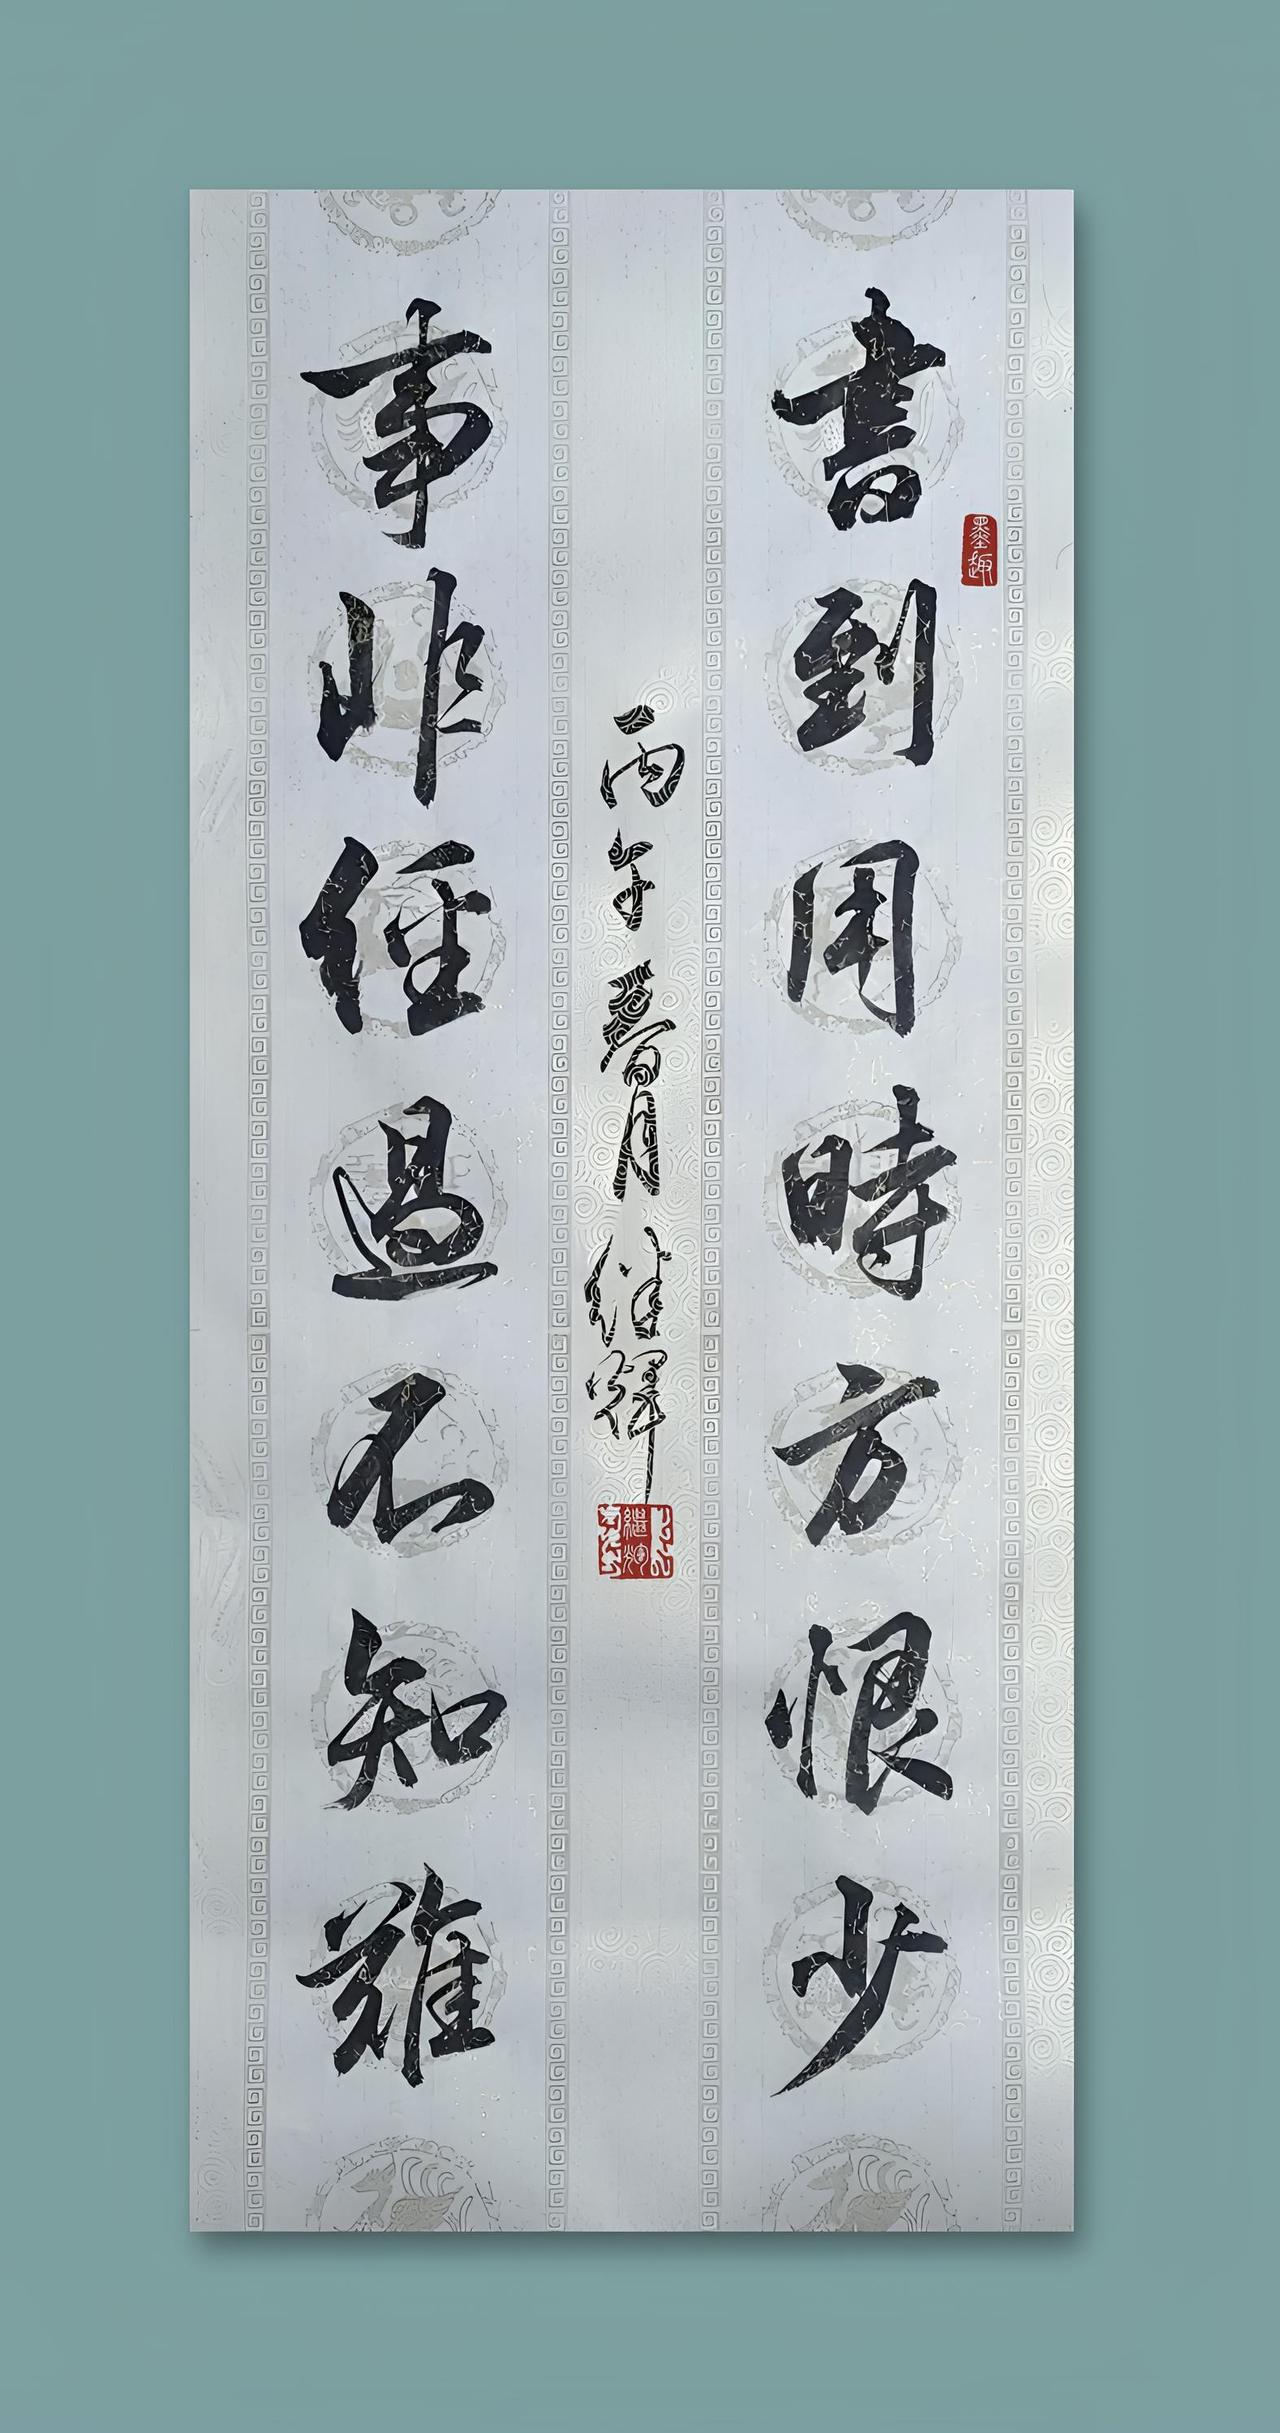 書到用時方恨少
墨趣
丙午春月繼輝
繼輝
事非經過不知難